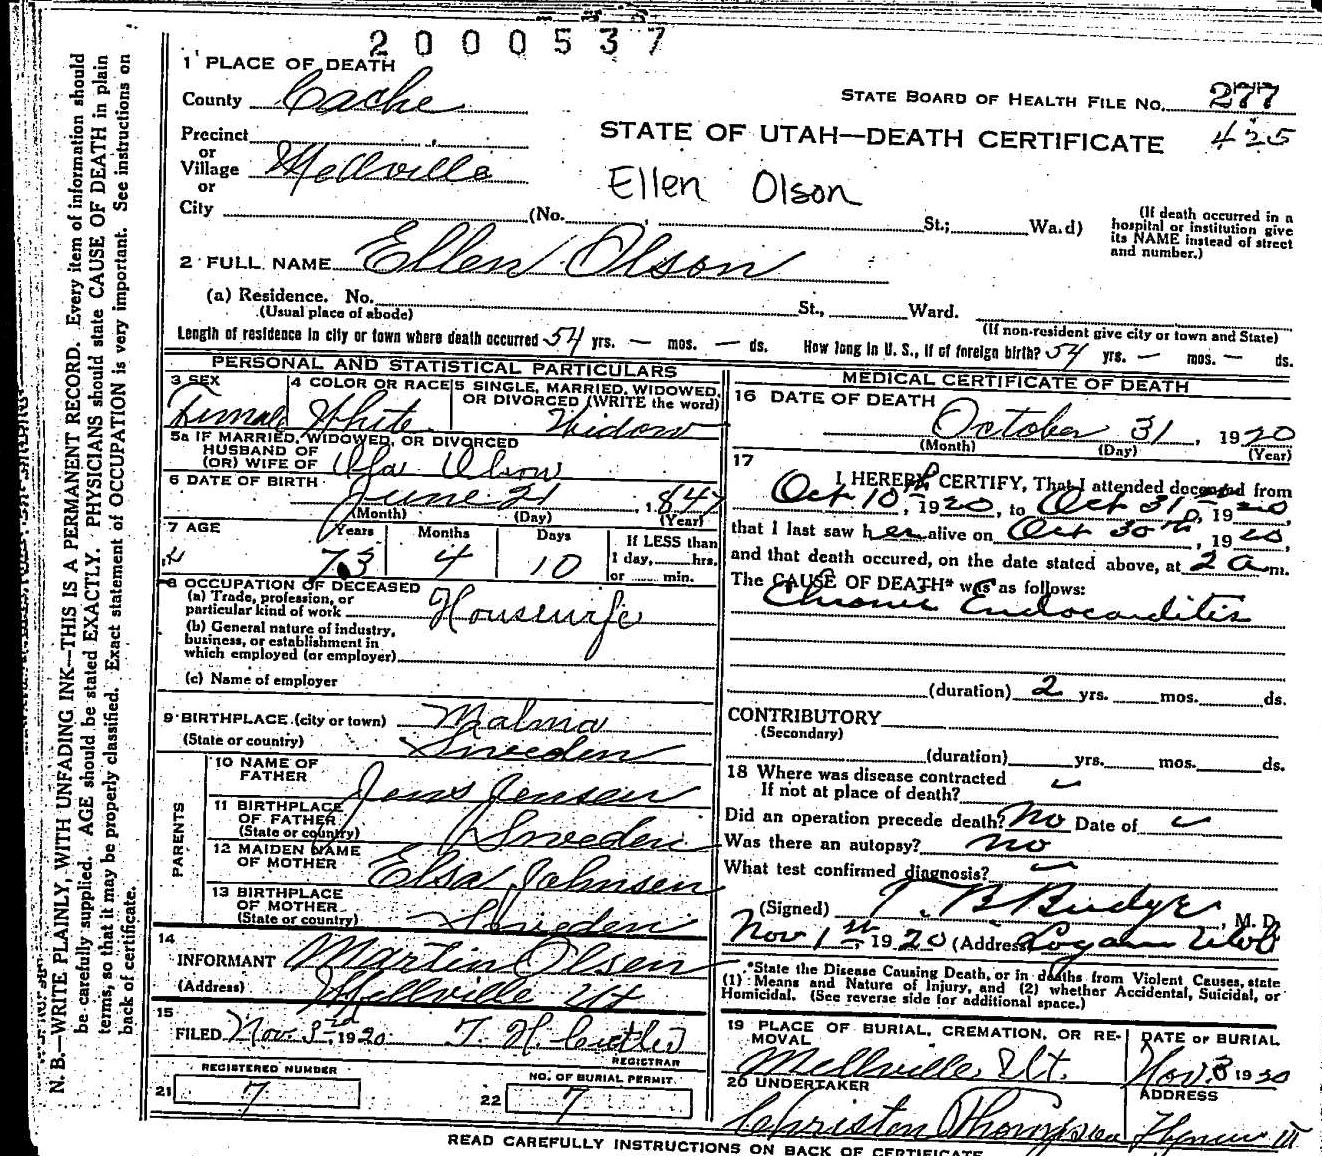 2000537
1 PLACE OF DEATH
County Cache
STATE BOARD OF HEALTH FILE NO. 277
425
STATE OF UTAH—DEATH CERTIFICATE
Precinct
or
Village Mellville
or
City (No. St.; Ward)
Ellen Olson
(If death occurred in a
hospital or institution give
its NAME instead of street
and number.)
2 FULL NAME Ellen Olson
(a) Residence. No. St., Ward.
(Usual place of abode)
(If non-resident give city or town and State)
Length of residence in city or town where death occurred 54 yrs. — mos. — ds. How long in U. S., if of foreign birth? 54 yrs. — mos. — ds.
PERSONAL AND STATISTICAL PARTICULARS
3 SEX Female
4 COLOR OR RACE White
5 SINGLE, MARRIED, WIDOWED,
OR DIVORCED (WRITE the word)
Widow
5a IF MARRIED, WIDOWED, OR DIVORCED
HUSBAND OF
(OR) WIFE OF Olson
6 DATE OF BIRTH June 21, 1847
(Month) (Day) (Year)
7 AGE Years Months Days If LESS than
73 4 10 1 day, hrs.
or min.
8 OCCUPATION OF DECEASED
(a) Trade, profession, or
particular kind of work Housewife
(b) General nature of industry,
business, or establishment in
which employed (or employer)
(c) Name of employer
9 BIRTHPLACE (city or town) Malmo
(State or country) Sweden
PARENTS
10 NAME OF
FATHER Jens Jensen
11 BIRTHPLACE
OF FATHER
(State or country) Sweden
12 MAIDEN NAME
OF MOTHER Elsa Johnsen
13 BIRTHPLACE
OF MOTHER
(State or country) Sweden
14
INFORMANT Martin Olsen
(Address) Mellville Ut
15
FILED Nov. 3rd 1920 T. H. Cutler
REGISTRAR
REGISTERED NUMBER
21 7
NO. OF BURIAL PERMIT
22 7
MEDICAL CERTIFICATE OF DEATH
16 DATE OF DEATH
October 31, 1920
(Month) (Day) (Year)
17
I HEREBY CERTIFY, That I attended deceased from
Oct 10th, 1920, to Oct 31st, 1920,
that I last saw her alive on Oct 30th, 1920,
and that death occured, on the date stated above, at 2 a m.
The CAUSE OF DEATH* was as follows:
Chronic Endocarditis
(duration) 2 yrs. mos. ds.
CONTRIBUTORY
(Secondary)
(duration) yrs. mos. ds.
18 Where was disease contracted
If not at place of death?
Did an operation precede death? No Date of
Was there an autopsy? no
What test confirmed diagnosis?
(Signed) T. B Budge, M. D.
Nov 1st 1920 (Address Logan Utah
*State the Disease Causing Death, or in deaths from Violent Causes, state
(1) Means and Nature of Injury, and (2) whether Accidental, Suicidal, or
Homicidal. (See reverse side for additional space.)
19 PLACE OF BURIAL, CREMATION, OR RE-
MOVAL
Mellville, Ut.
DATE OF BURIAL
Nov. 3 1920
20 UNDERTAKER
Christen Thompsen
ADDRESS
READ CAREFULLY INSTRUCTIONS ON BACK OF CERTIFICATE
N. B.—WRITE PLAINLY, WITH UNFADING INK—THIS IS A PERMANENT RECORD. Every item of information should
be carefully supplied. AGE should be stated EXACTLY. PHYSICIANS should state CAUSE OF DEATH in plain
terms, so that it may be properly classified. Exact statement of OCCUPATION is very important. See instructions on
back of certificate.